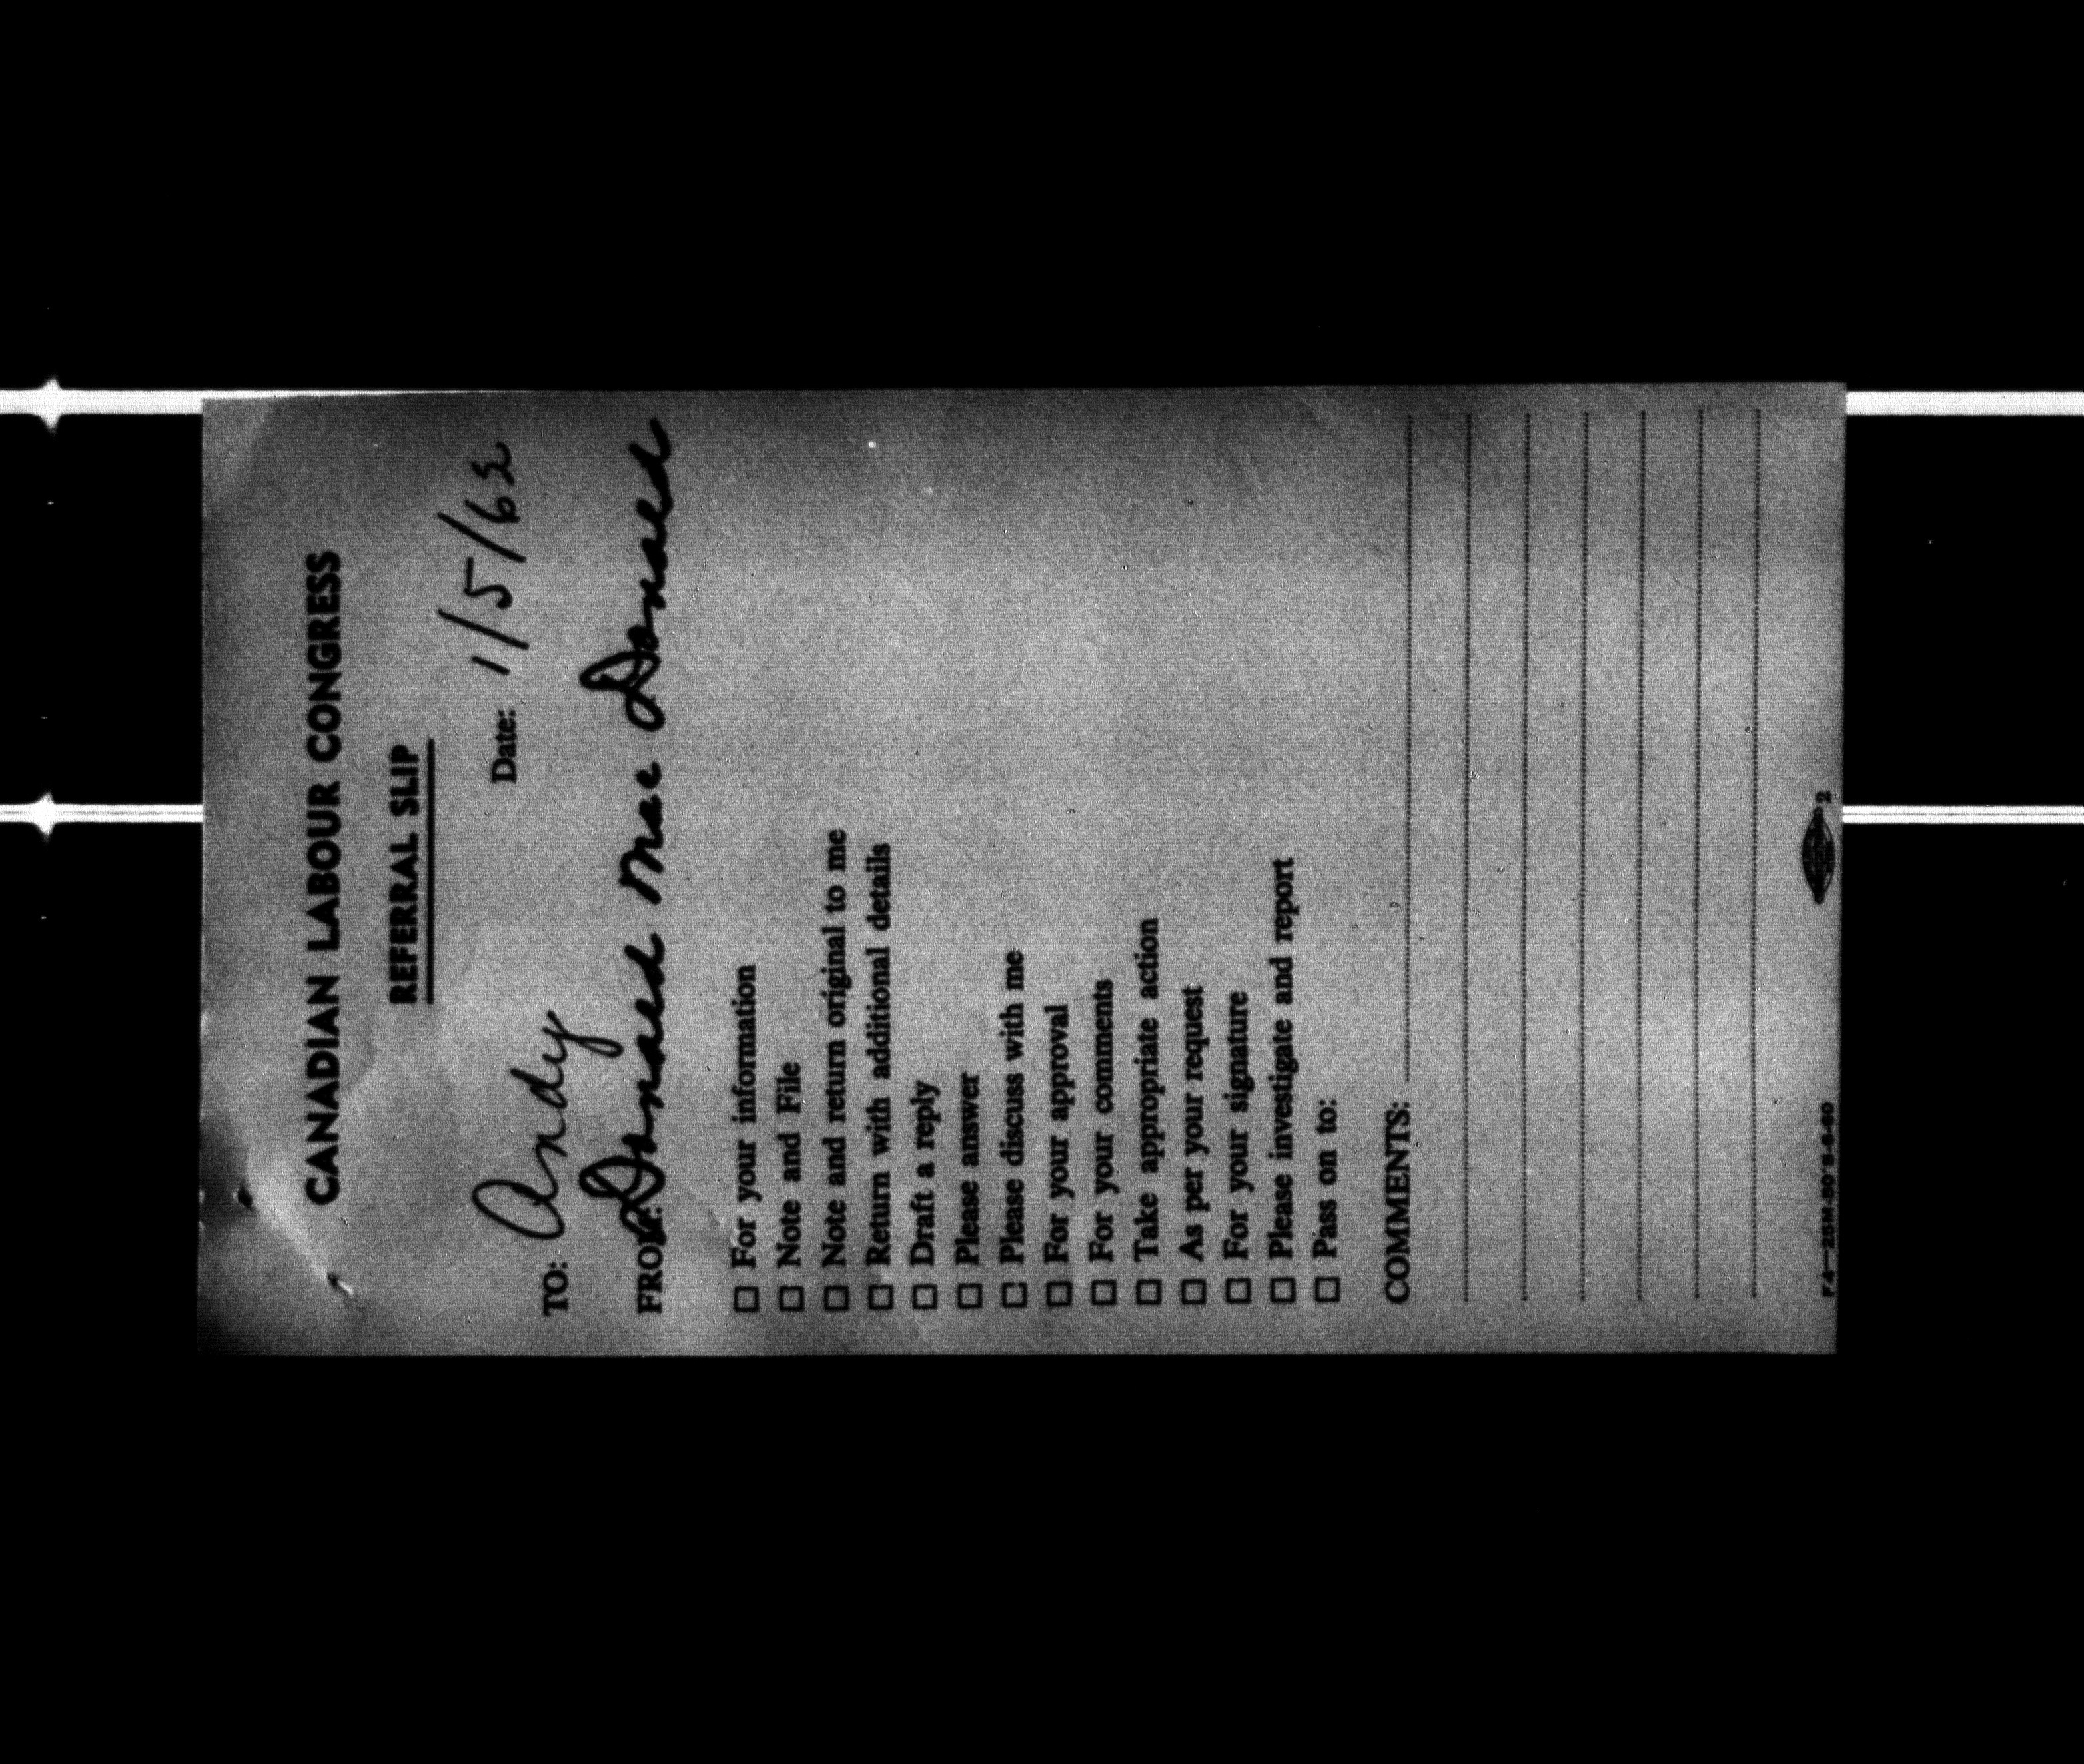 CANADIAN LABOUR CONGRESS
REFERRAL SLIP
Date: 1/5/63
TO: Andy
FROM: Donald Mac Donald
☐ For your information
☐ Note and File
☐ Note and return original to me
☐ Return with additional details
☐ Draft a reply
☐ Please answer
☐ Please discuss with me
☐ For your approval
☐ For your comments
☐ Take appropriate action
☐ As per your request
☐ For your signature
☐ Please investigate and report
☐ Pass on to:
COMMENTS:
2